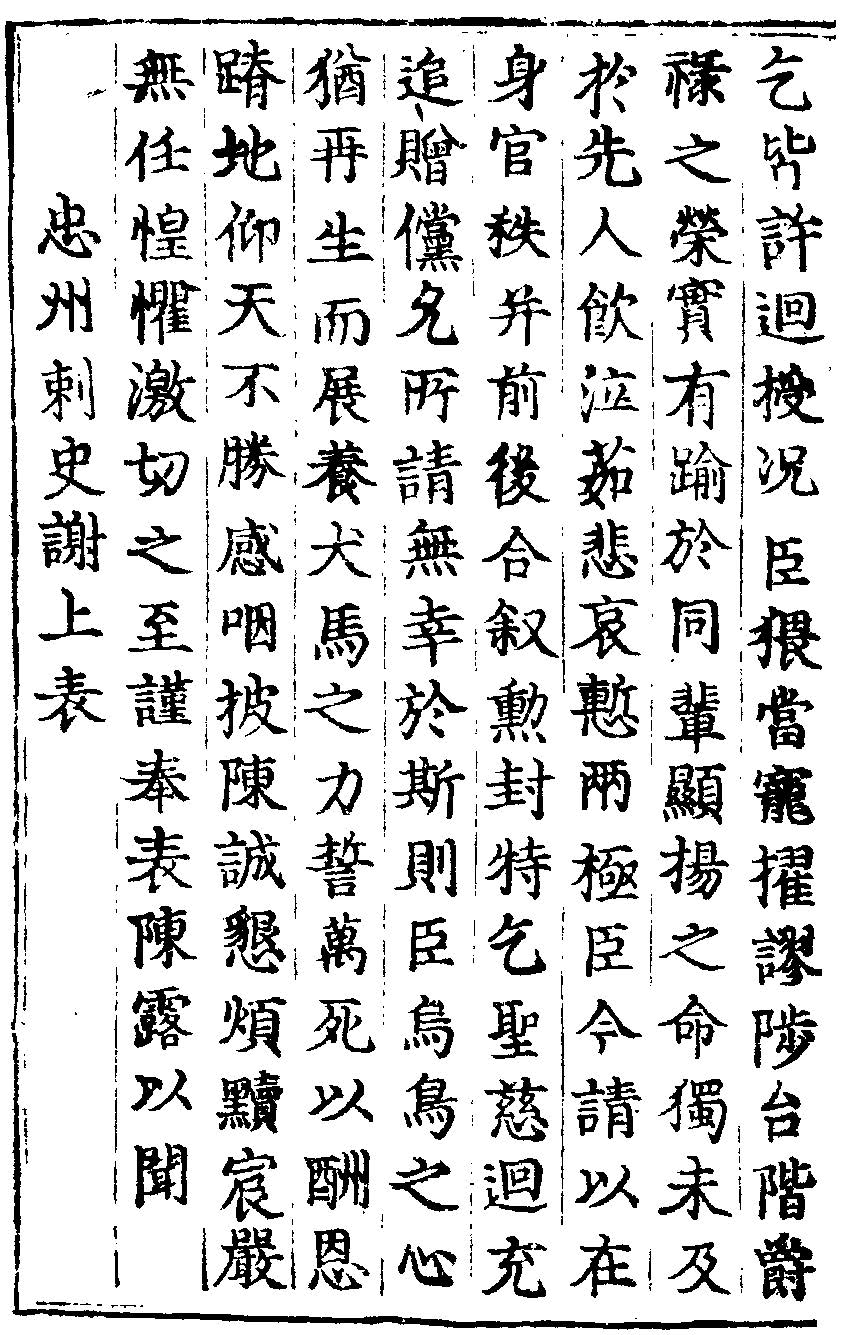 乞皆許迴授况臣猥當寵擢謬陟台階爵
祿之榮實有踰於同輩顯揚之命獨未及
於先人飲泣茹悲哀慙兩極臣今請以在
身官秩并前後合叙勲封特乞聖慈迴充
追贈儻允所請無幸於斯則臣烏鳥之心
猶再生而展養犬馬之力誓萬死以酬恩
蹐地仰天不勝感咽披陳誠懇煩黷宸嚴
無任惶懼激切之至謹奉表陳露以聞
忠州刺史謝上表